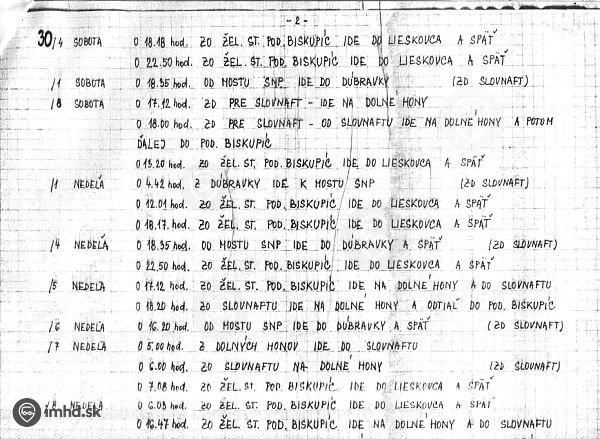 - 2 -
30/4 SOBOTA O 18.18 hod. ZO ŽEL. ST. POD. BISKUPIC IDE DO LIESKOVCA A SPÄŤ
O 22.50 hod. ZO ŽEL. ST. POD. BISKUPÍC IDE DO LIESKOVCA A SPÄŤ
/1 SOBOTA O 18.35 hod. OD MOSTU SNP IDE DO DÚBRAVKY (ZD SLOVNAFT)
/8 SOBOTA O 17.12 hod. ZD PRE SLOVNAFT - IDE NA DOLNÉ HONY
O 18.00 hod. ZD PRE SLOVNAFT - OD SLOVNAFTU IDE NA DOLNÉ HONY A POTOM
ĎALEJ DO POD. BISKUPÍC
O 15.20 hod. ZO ŽEL. ST. POD. BISKUPÍC IDE DO LIESKOVCA A SPÄŤ
/1 NEDEĽA O 4.42 hod. Z DÚBRAVKY IDE K MOSTU SNP (ZD SLOVNAFT)
O 12.01 hod. ZO ŽEL. ST. POD. BISKUPÍC IDE DO LIESKOVCA A SPÄŤ
O 18.17 hod. ZO ŽEL. ST. POD. BISKUPÍC IDE DO LIESKOVCA A SPÄŤ
/4 NEDEĽA O 18.35 hod. OD MOSTU SNP IDE DO DÚBRAVKY A SPÄŤ (ZD SLOVNAFT)
O 22.50 hod. ZO ŽEL. ST. POD. BISKUPÍC IDE DO LIESKOVCA A SPÄŤ
/5 NEDEĽA O 17.12 hod. ZO ŽEL. ST. POD. BISKUPÍC IDE NA DOLNÉ HONY A DO SLOVNAFTU
O 18.20 hod. ZO SLOVNAFTU IDE NA DOLNÉ HONY A ODTIAĽ DO POD. BISKUPÍC
/6 NEDEĽA O 16.20 hod. OD MOSTU SNP IDE DO DÚBRAVKY A SPÄŤ (ZD SLOVNAFT)
/7 NEDEĽA O 5.00 hod. Z DOLNÝCH HONOV IDE DO SLOVNAFTU
O 6.00 hod. ZO SLOVNAFTU NA DOLNÉ HONY (ZD SLOVNAFT)
O 7.08 hod. ZO ŽEL. ST. POD. BISKUPÍC IDE DO LIESKOVCA A SPÄŤ
/8 NEDEĽA O 6.03 hod. ZO ŽEL. ST. POD. BISKUPÍC IDE DO LIESKOVCA A SPÄŤ
O 16.47 hod. ZO ŽEL. ST. POD. BISKUPÍC IDE NA DOLNÉ HONY A DO SLOVNAFTU
imhd.sk